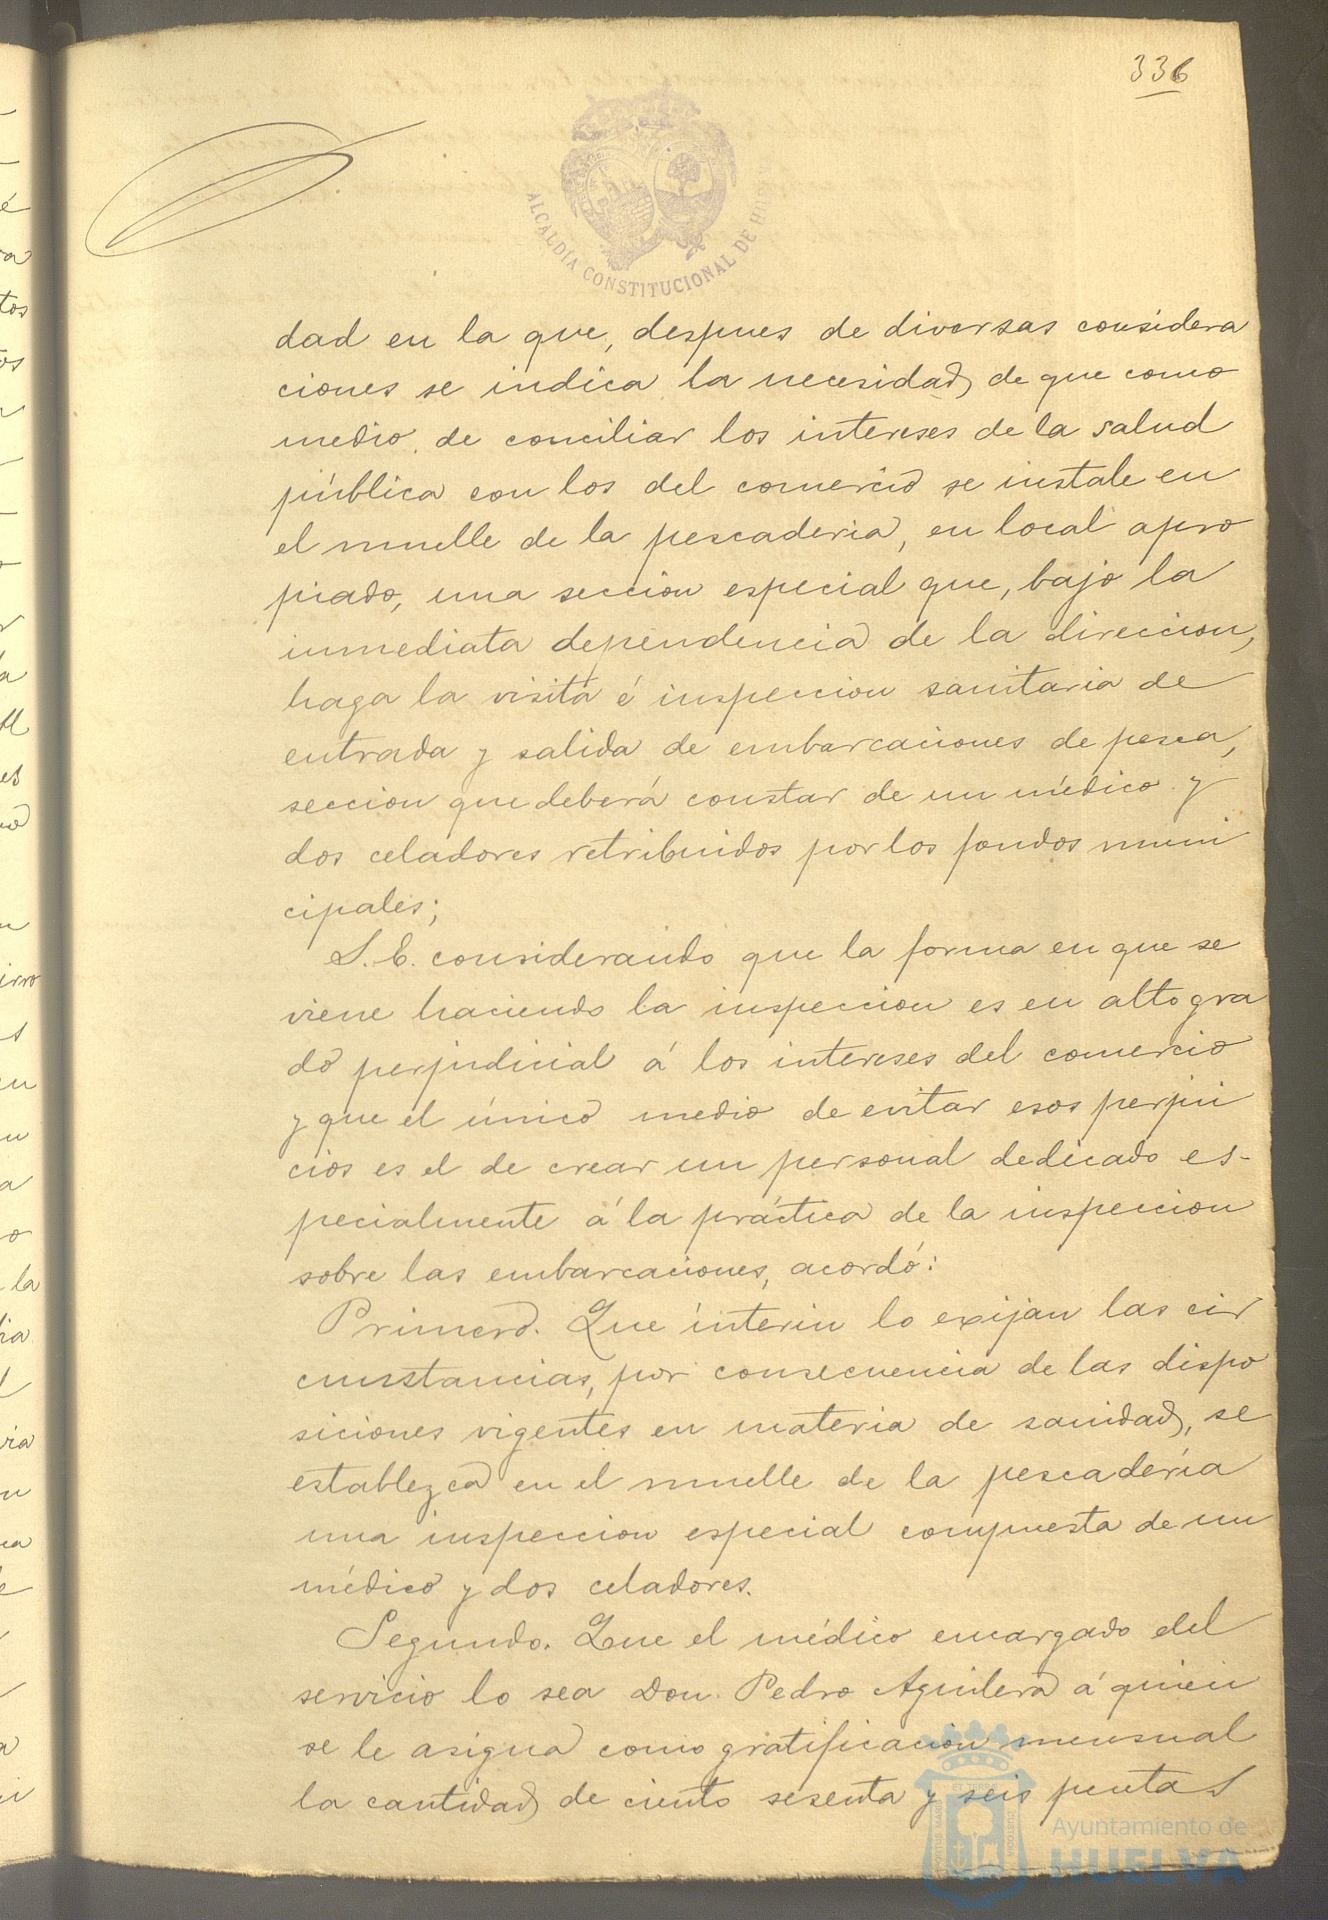 336
ALCALDÍA CONSTITUCIONAL DE HUELVA
dad en la que, despues de diversas considera
ciones se indica la necesidad, de que como
medio de conciliar los intereses de la salud
pública con los del comercio se instale en
el muelle de la pescaderia, en local apro
piado, una seccion especial que, bajo la
inmediata dependencia de la direccion,
haga la visita é inspeccion sanitaria de
entrada y salida de embarcaciones de pesca,
seccion que deberá constar de un médico y
dos celadores retribuidos por los fondos muni
cipales;
S. E. considerando que la forma en que se
viene haciendo la inspeccion es en alto gra
do perjudicial á los intereses del comercio
y que el único medio de evitar esos perjui
cios es el de crear un personal dedicado es-
pecialmente á la práctica de la inspeccion
sobre las embarcaciones, acordó:
Primero. Que ínterin lo exijan las cir
cunstancias, por consecuencia de las dispo
siciones vigentes en materia de sanidad, se
establezca en el muelle de la pescadería
una inspeccion especial compuesta de un
médico y dos celadores.
Segundo. Que el médico encargado del
servicio lo sea Don. Pedro Aguilera á quien
se le asigna como gratificacion mensual
la cantidad de ciento sesenta y seis pesetas
Ayuntamiento de
HUELVA